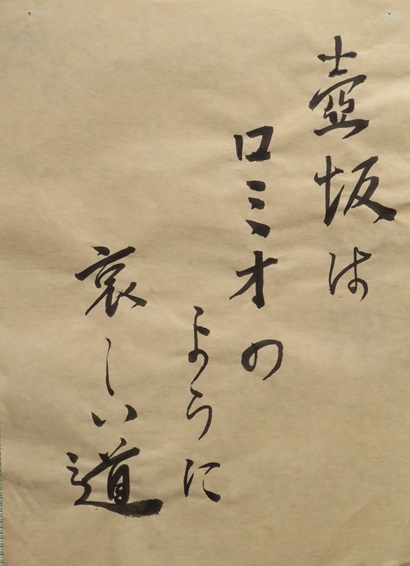 壺坂は
ロミオの
ように
哀しい道